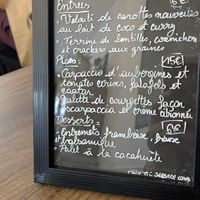 Entrées 6€
• Velouté de carottes nouvelles
au lait de coco et curry
• Terrine de lentilles, cornichons
et crackers aux graines
Plats: 15€
• Carpaccio d'aubergines et
tomates cerises, falafels et
zaatar
• Galette de courgettes façon
scarpaccia et crème citronnée
Desserts: 6€
• Entremets framboise, fraise
et balsamique
• Palet à la cacahuète